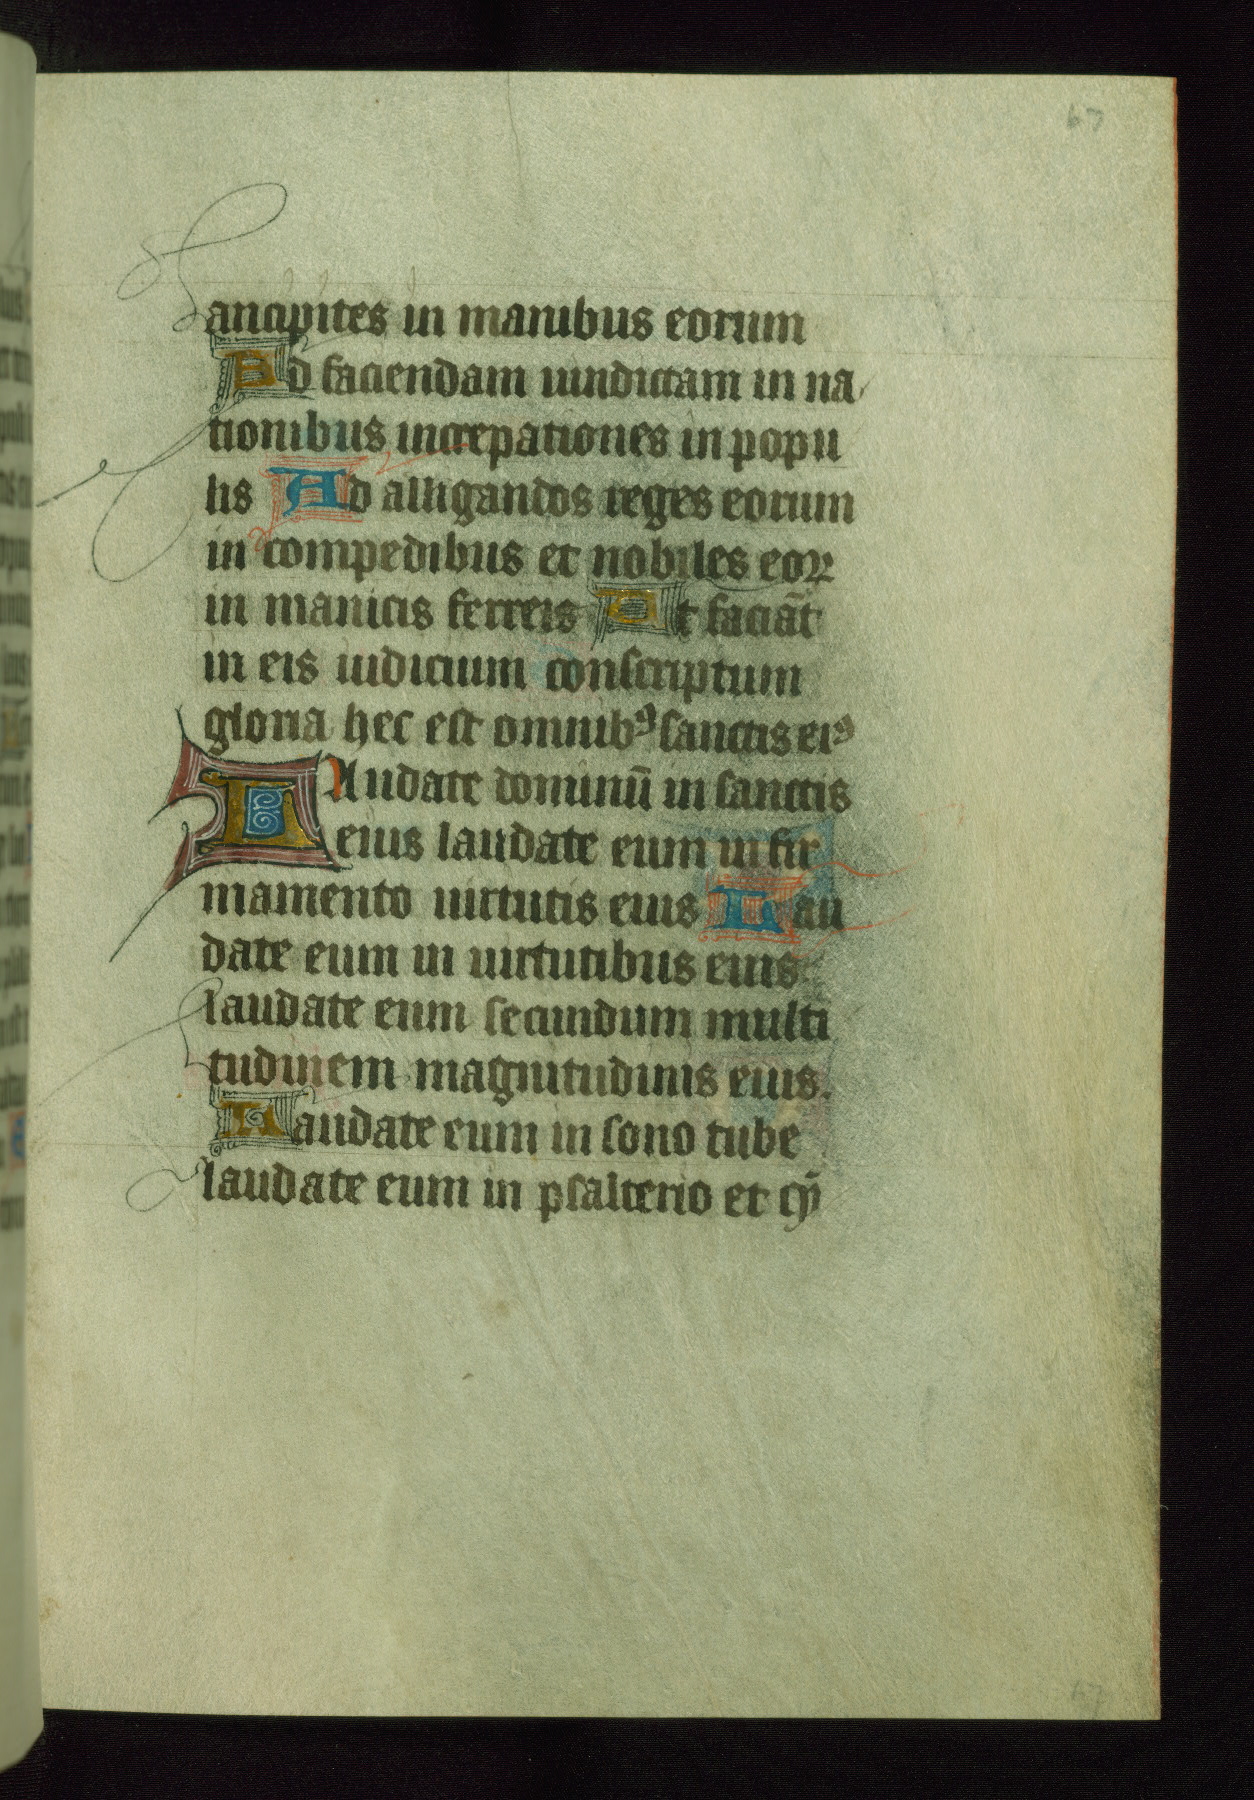 67
ancipites in manibus eorum
Ad faciendam uindictam in na
tionibus increpationes in popu
lis Ad alligandos reges eorum
in compedibus et nobiles eoꝝ
in manicis ferreis Ut faciāt
in eis iudicium conscriptum
gloria hec est omnibꝰ sanctis eiꝰ
LAudate dominū in sanctis
eius laudate eum in fir
mamento uirtutis eius Lau
date eum in uirtutibus eius
laudate eum secundum multi
tudinem magnitudinis eius.
Laudate eum in sono tube
laudate eum in psalterio et cy̅
67